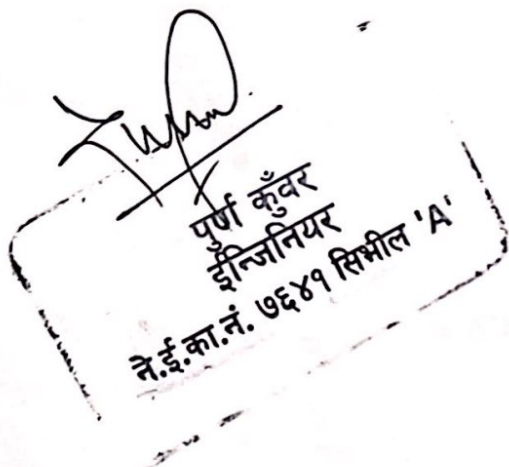 पुर्ण कुँवर
ईन्जिनियर
ने.ई.का.नं. ७६४१ सिभील 'A'